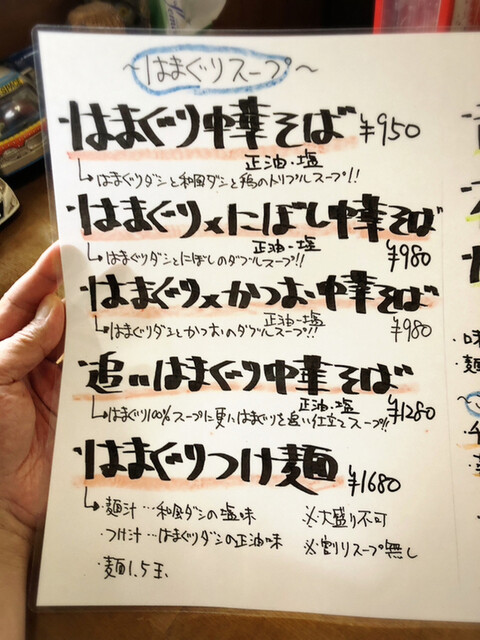 ～はまぐりスープ～
はまぐり中華そば ¥950
正油・塩
はまぐりダシと和風ダシと鶏のトリプルスープ!!
・はまぐり×にぼし中華そば
正油・塩
はまぐりダシとにぼしのダブルスープ!! ¥980
・はまぐり×かつお中華そば
正油・塩
はまぐりダシとかつおのダブルスープ!! ¥980
・追いはまぐり中華そば
正油・塩
はまぐり100%スープに更にはまぐりを追い仕立てスープ!! ¥1280
・はまぐりつけ麺 ¥1680
・麺汁…和風ダシの塩味 ※大盛り不可
・つけ汁…はまぐりダシの正油味 ※割りスープ無し
・麺1.5玉
・味
・麺